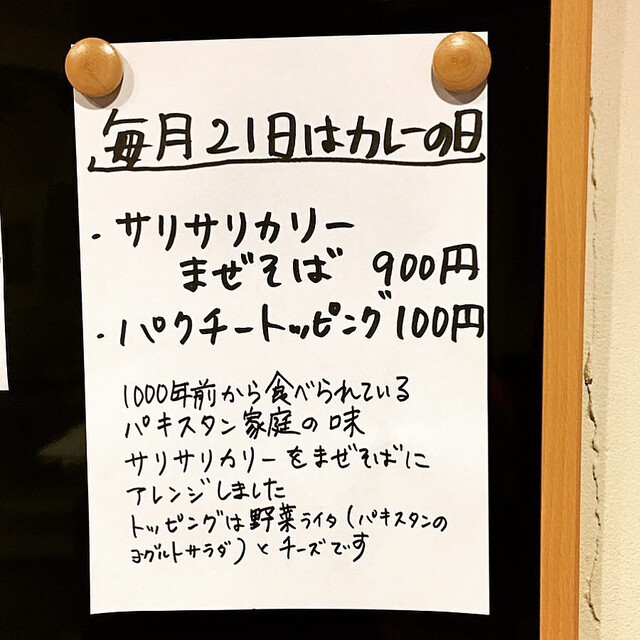 毎月21日はカレーの日
・サリサリカリー
まぜそば 900円
・パクチートッピング100円
1000年前から食べられている
パキスタン家庭の味
サリサリカリーをまぜそばに
アレンジしました
トッピングは野菜ライタ(パキスタンの
ヨグルトサラダ)とチーズです